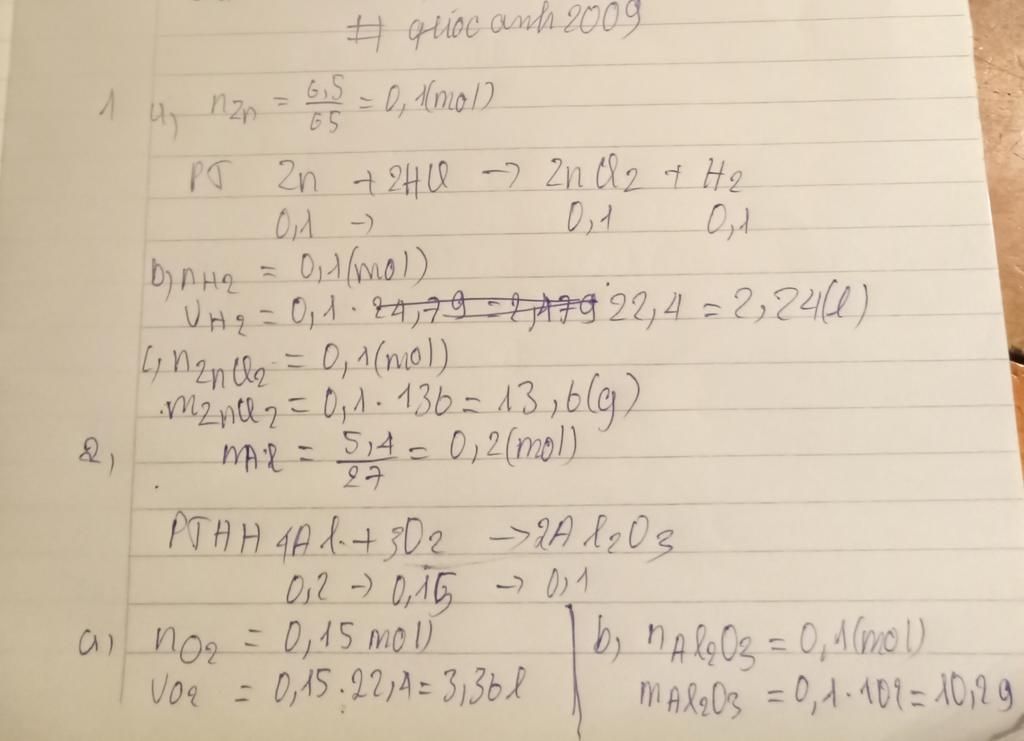 # quocanh2009
1 a) nZn = 6,5/65 = 0,1(mol)
PT Zn + 2HCl → ZnCl2 + H2
0,1 → 0,1 0,1
b) nH2 = 0,1(mol)
VH2 = 0,1 . 24,79 = 2,479 22,4 = 2,24(l)
c, nZnCl2 = 0,1(mol)
mZnCl2 = 0,1 . 136 = 13,6(g)
2, nAl = 5,4/27 = 0,2(mol)
PTHH 4Al + 3O2 → 2Al2O3
0,2 → 0,15 → 0,1
a) nO2 = 0,15 mol)
VO2 = 0,15 . 22,4 = 3,36l
b, nAl2O3 = 0,1(mol)
mAl2O3 = 0,1 . 102 = 10,2g